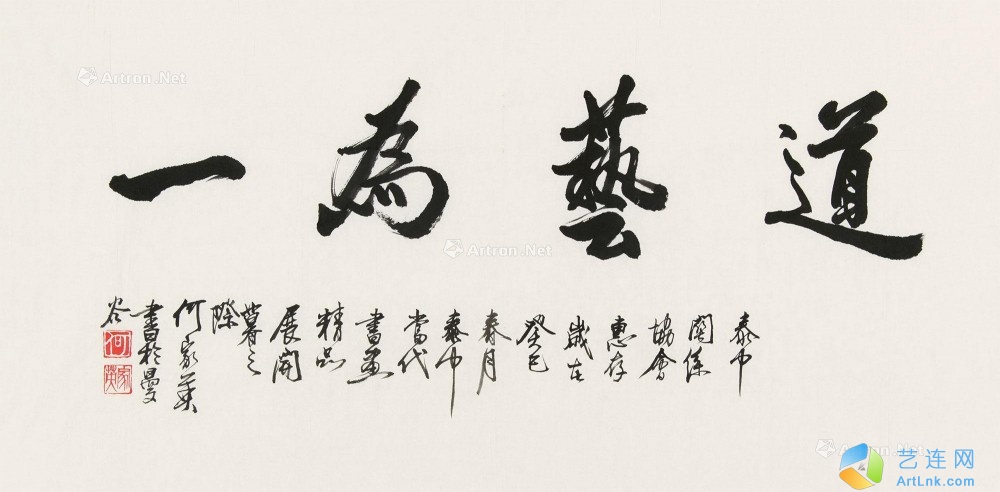 道藝為一
泰中
關係
協會
惠存
歲在
癸巳
春月
泰中
當代
書畫
精品
展開
幕之
際
何家英
書於曼
谷
何
家英
Artron.Net
Artron.Net
Artron.Net
艺连网
ArtLnk.com